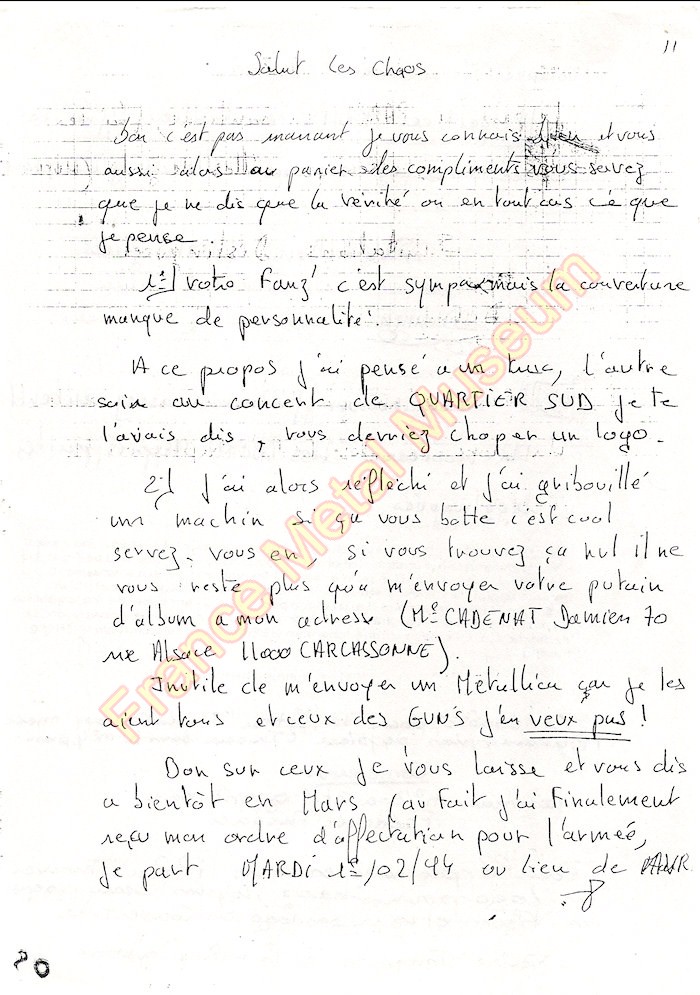 11
Salut les Chaos
Bon c'est pas marrant je vous connais bien et vous
aussi alors au panier les compliments vous savez
que je ne dis que la vérité ou en tout cas ce que
je pense
1°) votre Fanz' c'est sympa mais la couverture
manque de personnalité.
A ce propos j'ai pensé a un truc, l'autre
soir au concert de QUARTIER SUD je te
l'avais dis, vous devriez choper un logo.
2°) J'ai alors réfléchi et j'ai gribouillé
un machin si ça vous botte c'est cool
servez-vous en, si vous trouvez ça nul il ne
vous reste plus qu'a m'envoyer votre putain
d'album a mon adresse (Mr CADENAT Damien 70
rue Alsace 11000 CARCASSONNE).
Inutile de m'envoyer un Métallica car je les
aient tous et ceux des GUN'S j'en veux pas !
Bon sur ceux je vous laisse et vous dis
a bientôt en Mars (au Fait j'ai Finalement
reçu mon ordre d'affectation pour l'armeé,
je part MARDI 1er/02/94 au lieu de
France Metal Museum